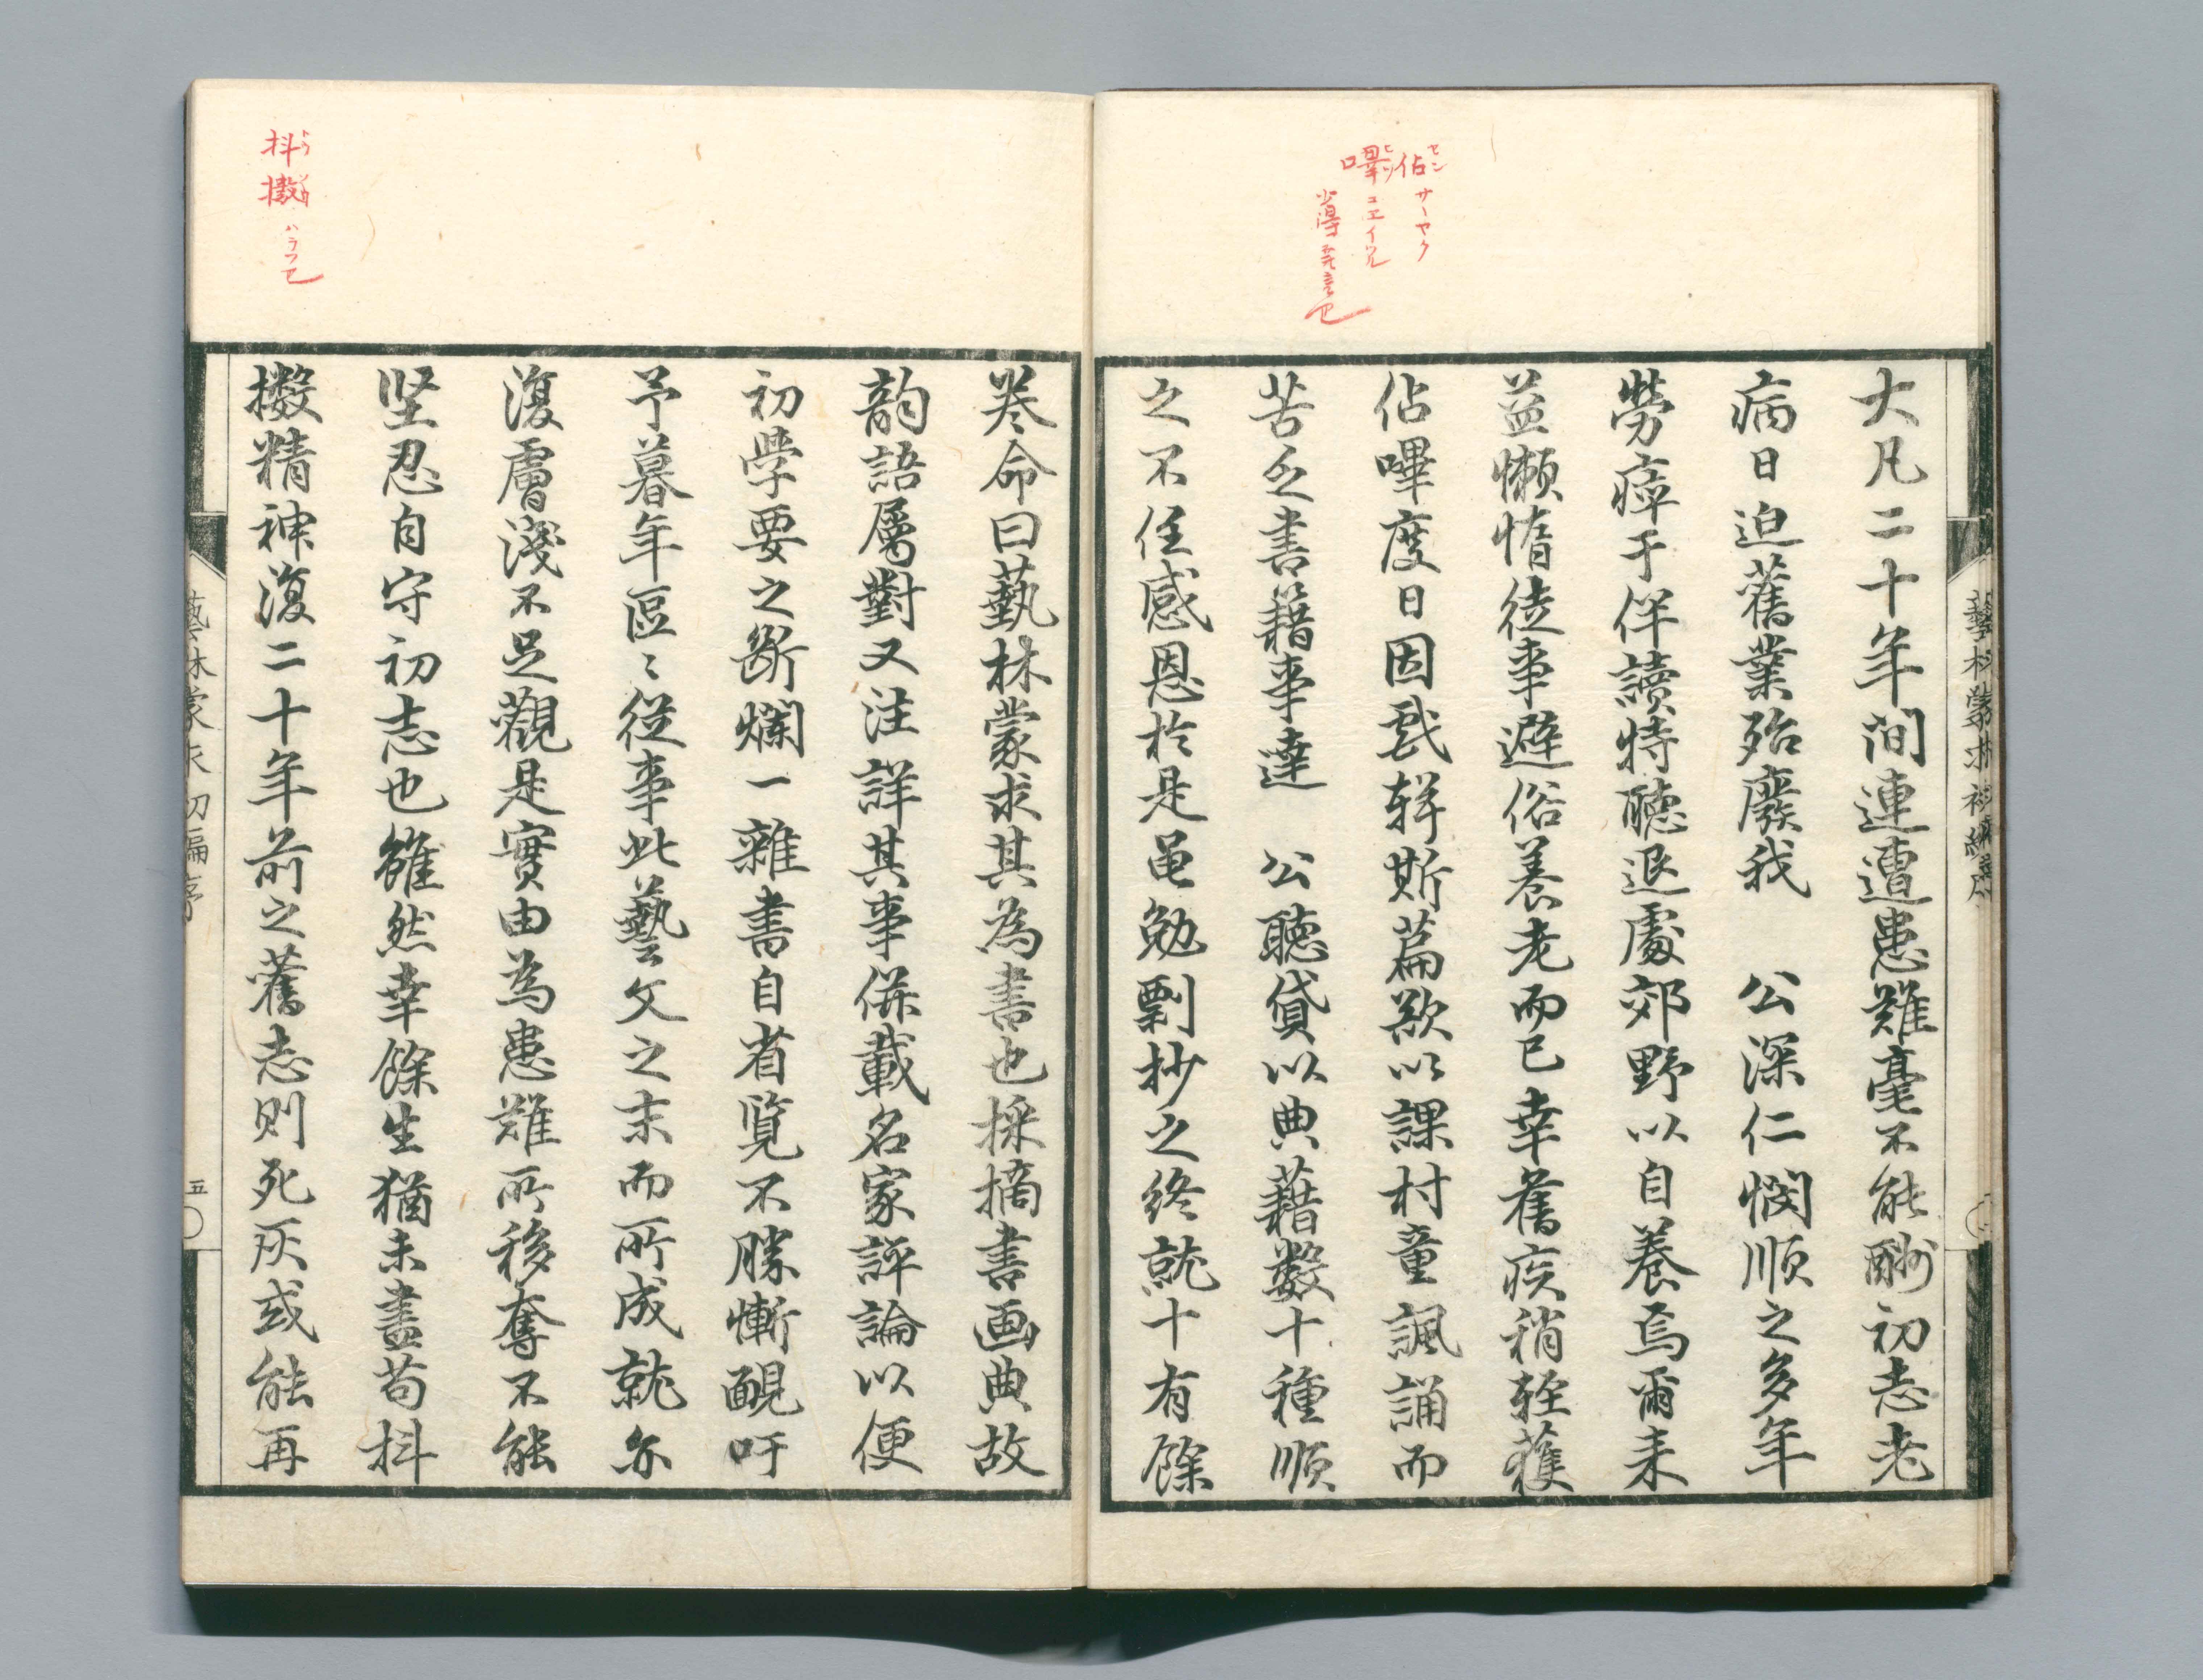 佔嗶
セン
ヒツ
サヽヤク
コエイツル
抖擻
トウ
ソウ
ハラフ也
大凡二十年間連遭患難毫不能酬初志老
病日迫舊業殆廢我　公深仁憫順之多年
勞瘁于伴讀特聽退處郊野以自養焉爾来
益懶惰徒事避俗養老而已幸舊疾稍輕獲
佔嗶度日因戲輯斯篇歟以課村童諷誦而
苦乏書籍事達　公聽貸以典藉數十種順
之不任感恩於是黽勉剽抄之終就十有餘
巻命曰藝林蒙求其為書也採摘書画典故
韵語屬對又注詳其事併載名家評論以便
初學要之断爛一雜書自省覧不勝慚靦吁
予暮年區〻從事此藝文之末而所成就尓
復膚淺不足觀是實由為患難所移奪不能
堅忍自守初志也雖然幸餘生猶未盡苟抖
擻精神復二十年前之舊志則死灰或能再
藝林蒙求初編序
五